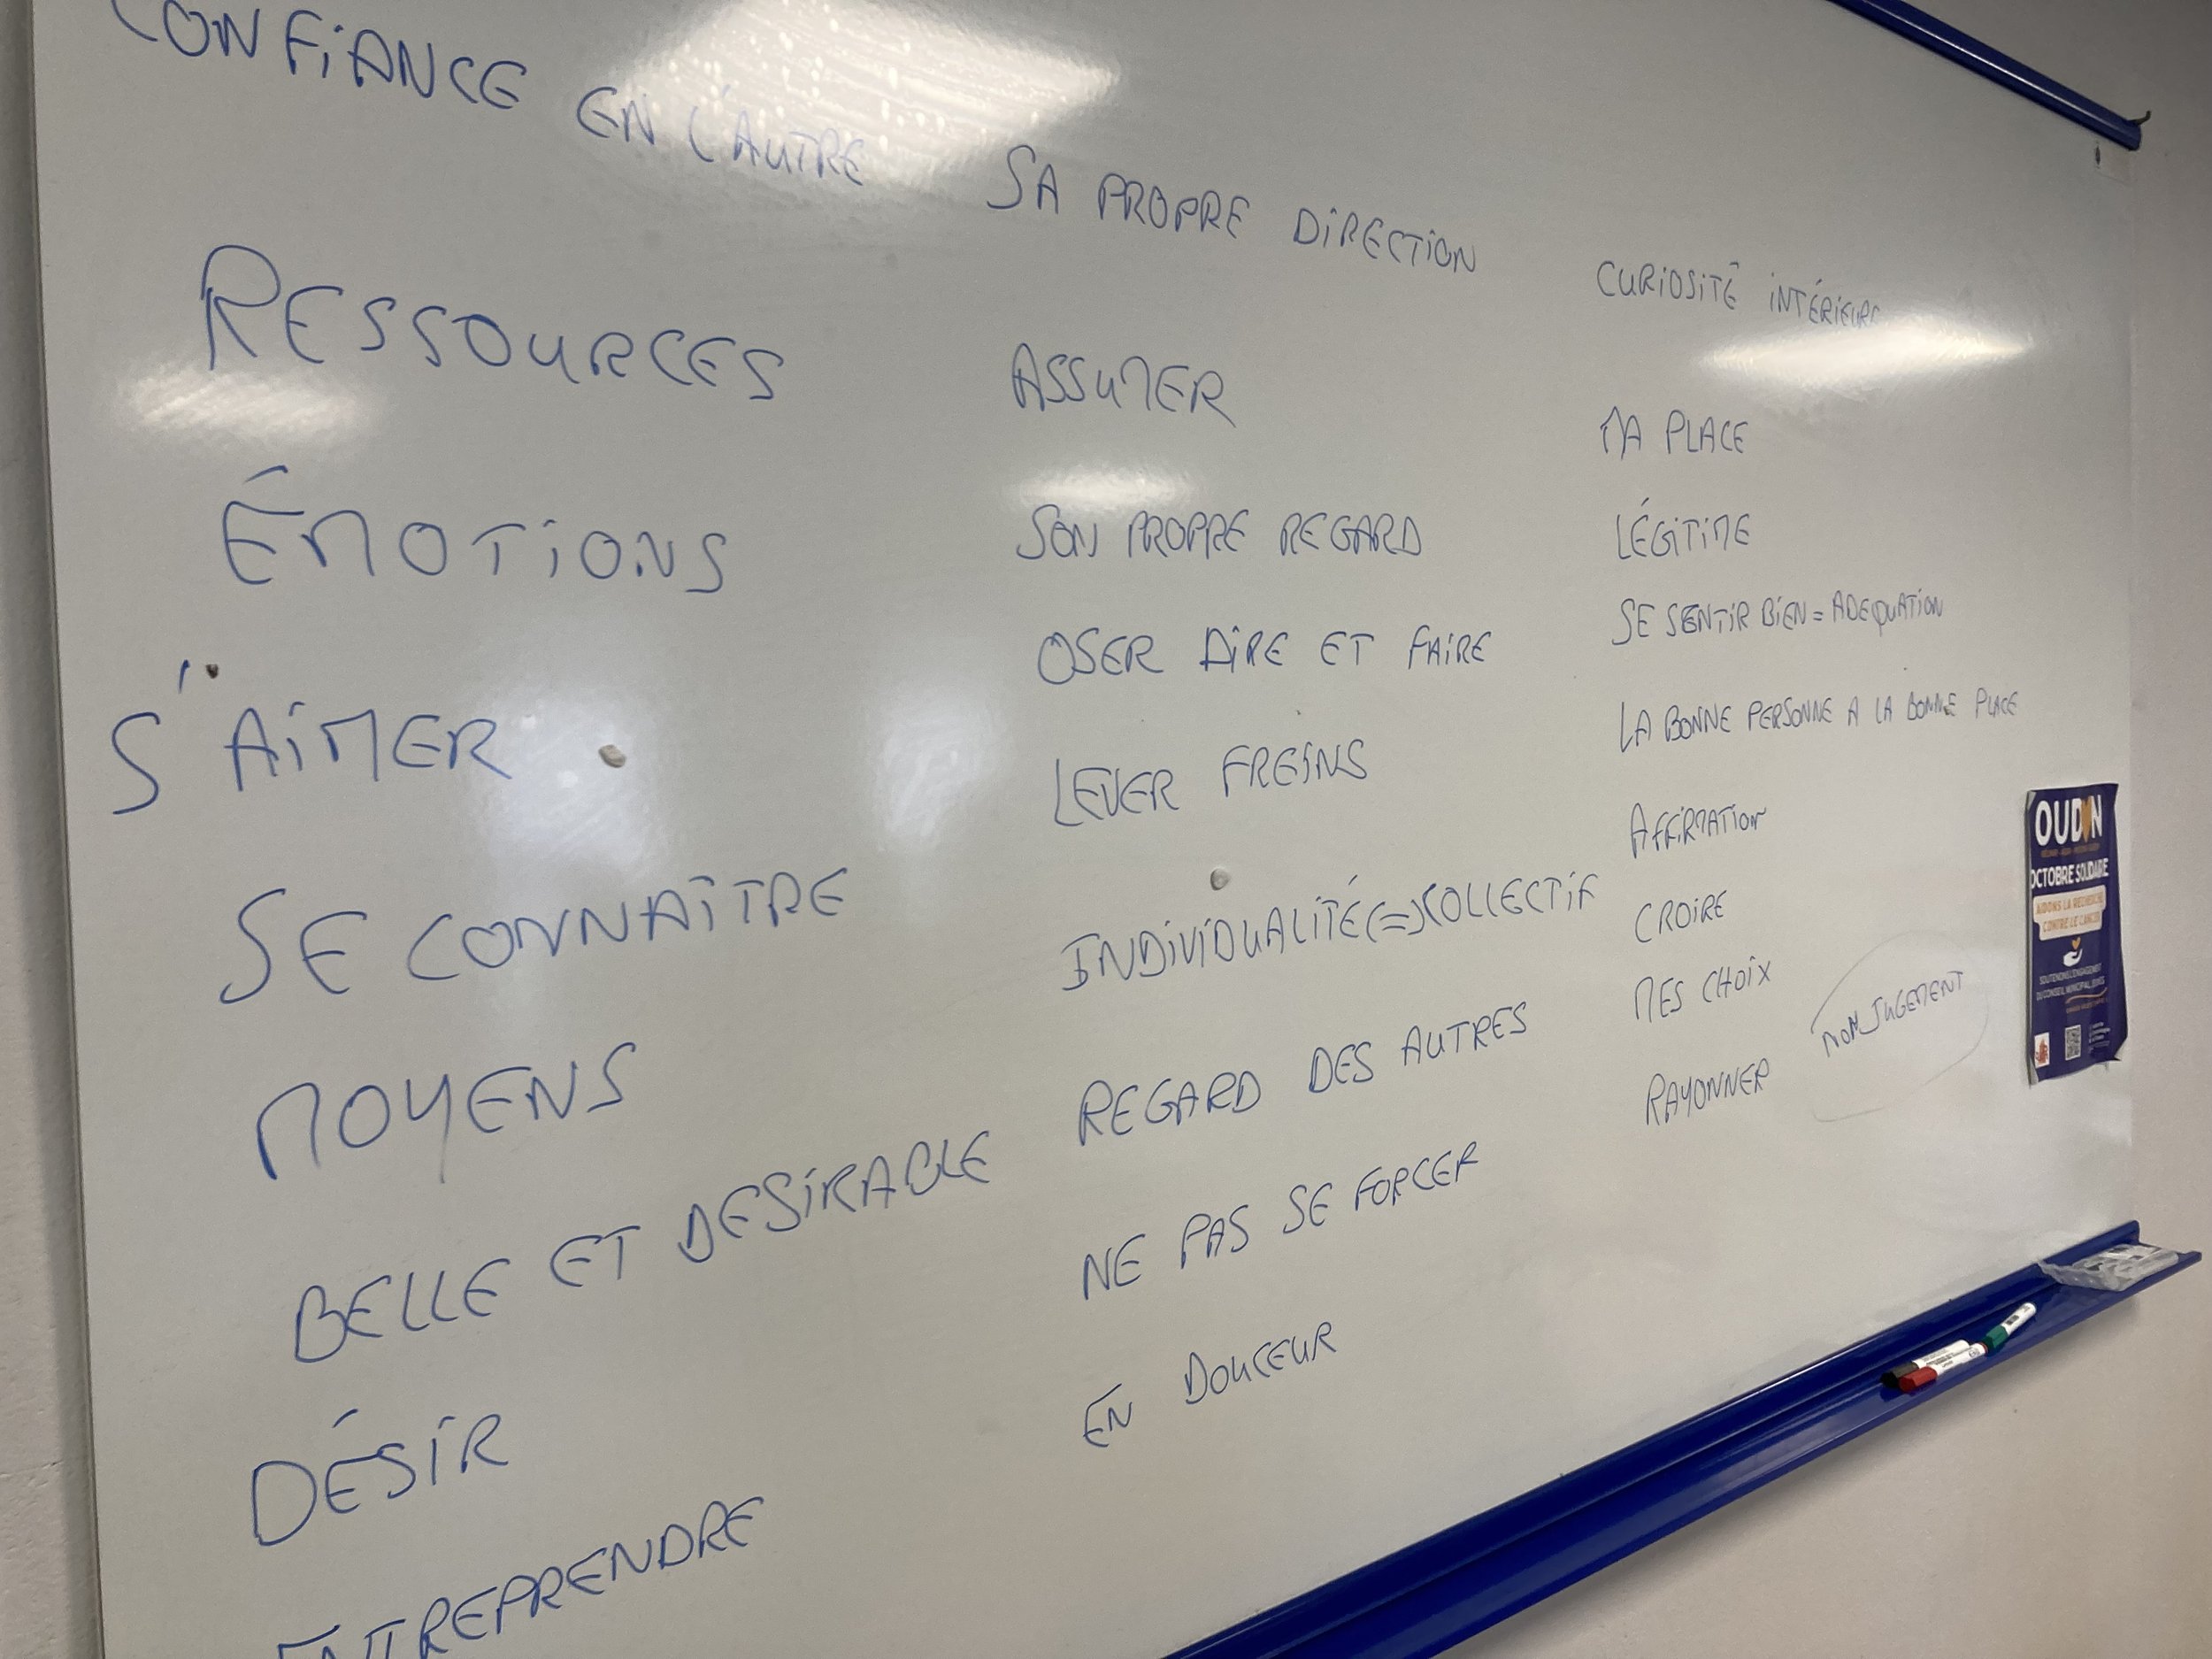 CONFIANCE EN L'AUTRE
RESSOURCES
ÉMOTIONS
S'AIMER
SE CONNAÎTRE
MOYENS
BELLE ET DESIRABLE
DÉSIR
ENTREPRENDRE
SA PROPRE DIRECTION
ASSUMER
SON PROPRE REGARD
OSER DIRE ET FAIRE
LEVER FREINS
INDIVIDUALITÉ (=) COLLECTIF
REGARD DES AUTRES
NE PAS SE FORCER
EN DOUCEUR
CURIOSITÉ INTÉRIEURE
MA PLACE
LÉGITIME
SE SENTIR BIEN = ADEQUATION
LA BONNE PERSONNE A LA BONNE PLACE
AFFIRMATION
CROIRE
MES CHOIX
RAYONNER
NON JUGEMENT
OUDIN
OCTOBRE SOLIDAIRE
AIDONS LA RECHERCHE
CONTRE LE CANCER